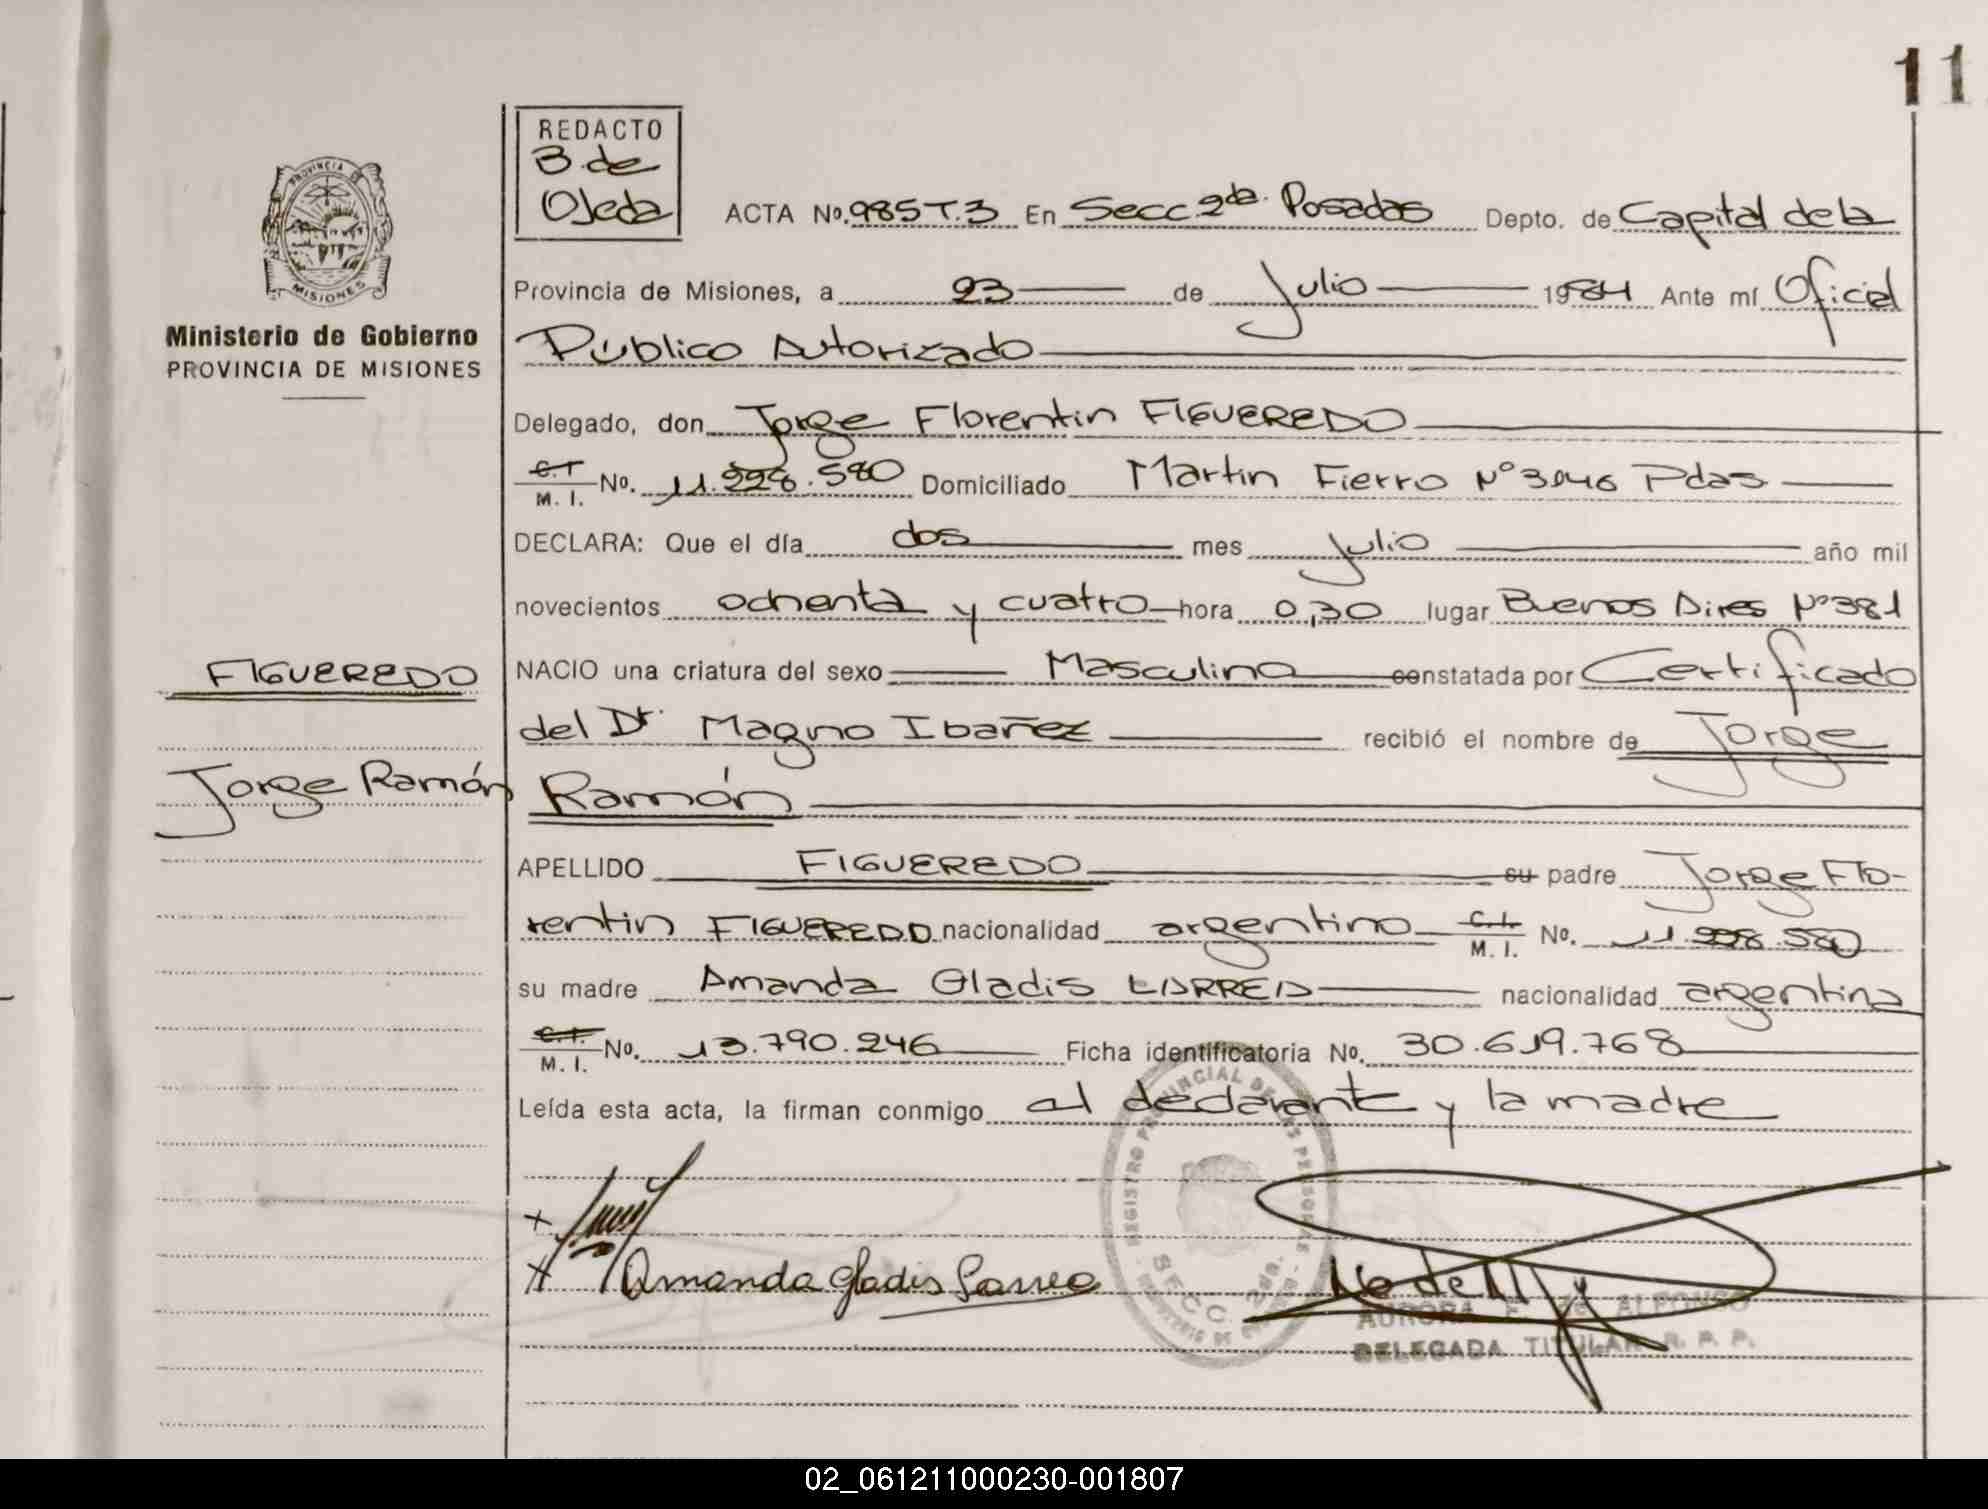 11
REDACTO
B. de
Ojeda
ACTA No. 985 T.3 En Secc 2da. Posadas Depto. de Capital de la
PROVINCIA DE
MISIONES
Provincia de Misiones, a 23 de Julio 1984 Ante mí Oficial
Ministerio de Gobierno
PROVINCIA DE MISIONES
Público Autorizado
Delegado, don Jorge Florentin FIGUEREDO
C.I.
M. I. No. 11.228.580 Domiciliado Martin Fierro Nº 3046 Pdas
DECLARA: Que el día dos mes Julio año mil
novecientos ochenta y cuatro hora 0,30 lugar Buenos Aires Nº 381
FIGUEREDO
NACIO una criatura del sexo Masculino constatada por Certificado
del Dr. Magno Ibañez recibió el nombre de Jorge
Jorge Ramón
Ramón
APELLIDO FIGUEREDO su padre Jorge Flo-
rentin FIGUEREDO nacionalidad argentino C.I. M. I. No. 11.228.580
su madre Amanda Gladis LARREA nacionalidad argentina
C.I.
M. I. No. 13.790.246 Ficha identificatoria No. 30.619.768
Leída esta acta, la firman conmigo el declarante y la madre
REGISTRO PROVINCIAL DE LAS PERSONAS
SECC. 2da.
Amanda Gladis Larrea
AURORA F. de ALFONSO
DELEGADA TITULAR R. P. P.
02_061211000230-001807